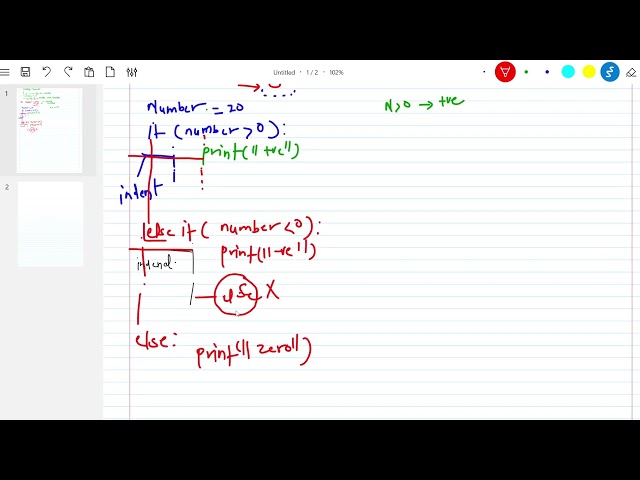 Untitled • 1 / 2 • 102%
1
2
Number = 20
N>0 → +ve
if (number > 0):
print("+ve")
indent
else if ( number < 0):
print("-ve")
else X
else:
print("zero")